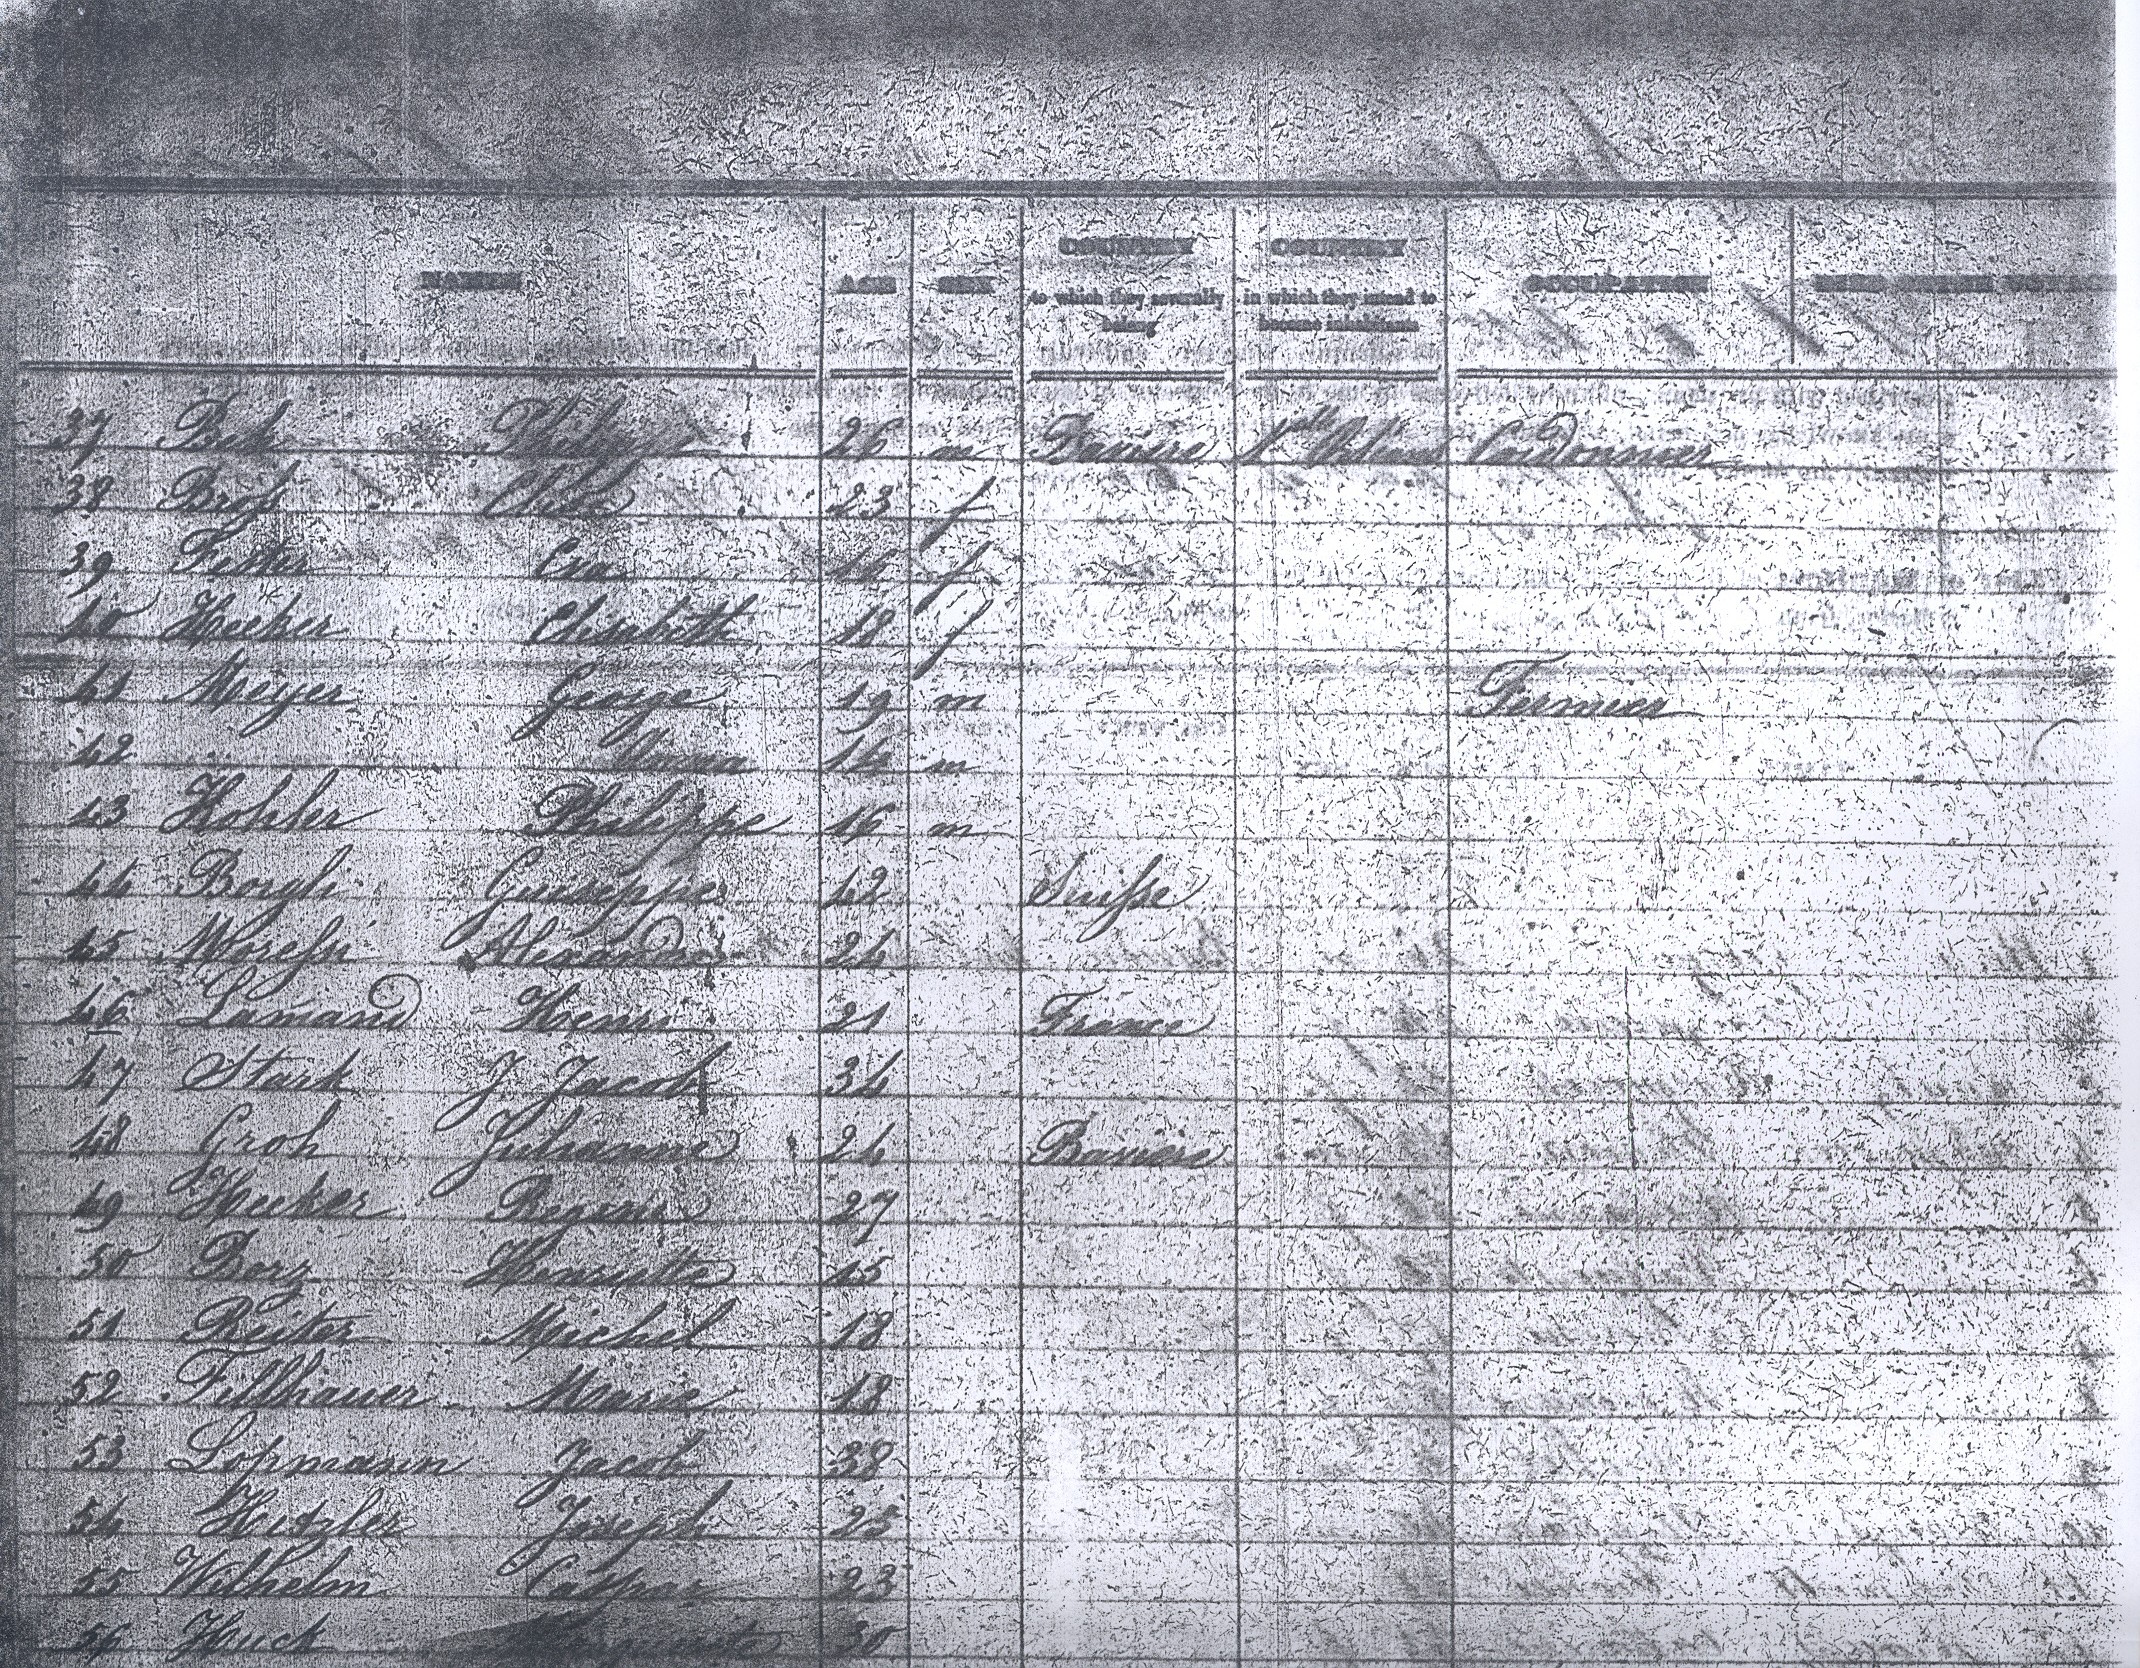 NAMES AGE SEX COUNTRY to which they severally belong COUNTRY in which they intend to become inhabitants OCCUPATION
37 26 m Bavière Cordonnier
38 Bross 23 f
39 Eva 16 f
40 Hecker Elisabeth 18 f
41 Meyer George 19 m Fermier
42 m
43 Kohler Philippe 16 m
44 Borghi Guiseppe 42 Suisse
45 Alexandre 24
46 Lamand Henri 21 France
47 Stark J. Jacob 34
48 Groh Julianne 24 Bavière
49 Hecker Regina 27
50 Borg Henriette
51 Reiter Michel 18
52 Fillhauer Marie 18
53 Lopmann Jacob 38
54 Hetzler Joseph 25
55 Wilhelm Caspar 23
56 Huck